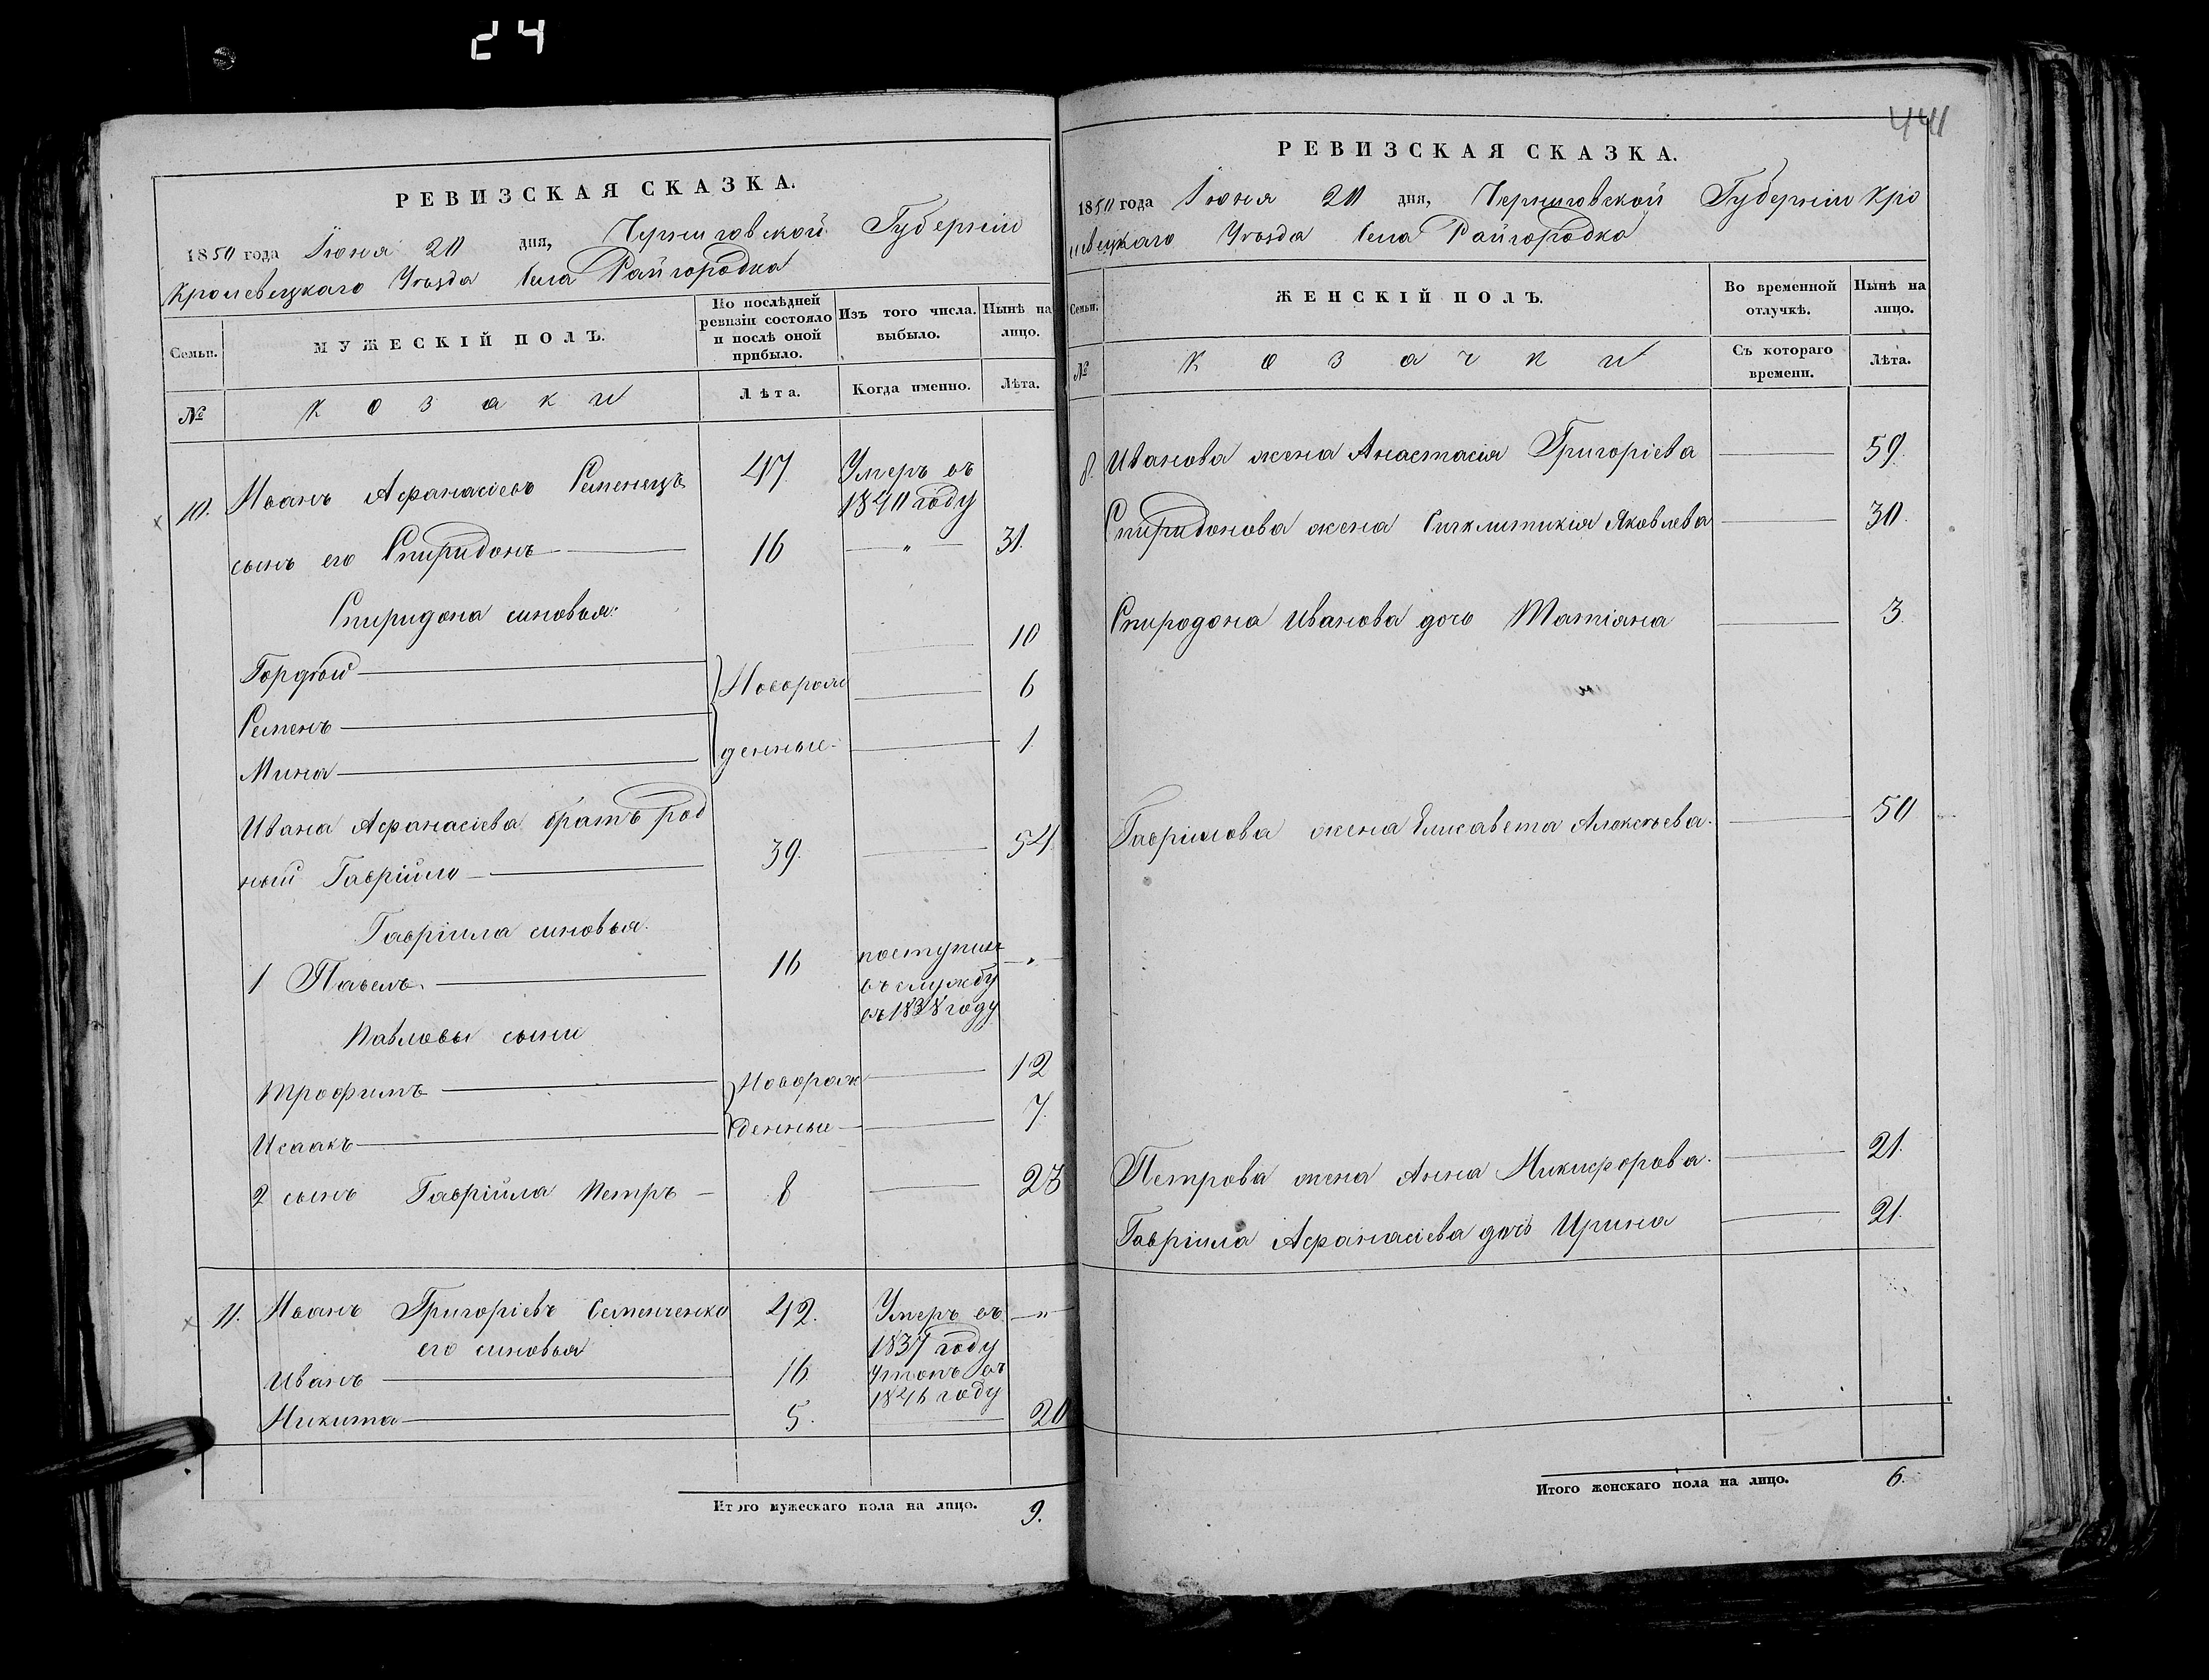 24
РЕВИЗСКАЯ СКАЗКА.
1850 года Іюня 20 дня, Черниговской Губерніи
Кролевецкаго Уѣзда Села Райгородка
Семьи.
МУЖЕСКІЙ ПОЛЪ.
По послѣдней ревизіи состояло и послѣ оной прибыло.
Изъ того числа выбыло.
Нынѣ на лицо.
№
Козаки
Лѣта.
Когда именно.
Лѣта.
10. Иванъ Афанасіевъ Семенецъ 47. Умеръ въ
1840 году
сынъ его Спиридонъ 16 " 31.
Спиридона синовья:
Гордѣй 10
Новорож
Семенъ 6
денные
Мина 1
Ивана Афанасіева братъ род
ный Гавріило 39. 54.
Гавріила синовья.
1 Павелъ. 16 поступилъ
въ службу
въ 1838 году
Павловы сыни
Трофимъ Новорож 12
Исаакъ денные 7.
2 сынъ Гавріила Петръ 8 23
11. Иванъ Григоріевъ Семенченко 42. Умеръ въ "
1837 году
его синовья
Иванъ 16 утопъ въ
1846 году
Никита 5. 20
Итого мужескаго пола на лицо. 9.
441
РЕВИЗСКАЯ СКАЗКА.
1850 года Іюня 20 дня, Черниговской Губерніи Кро
левецкаго Уѣзда Села Райгородка
Семьи.
ЖЕНСКІЙ ПОЛЪ.
Во временной отлучкѣ.
Нынѣ на лицо.
№
Козачки
Съ котораго времени.
Лѣта.
8. Иванова жена Анастасія Григоріева 59.
Спиридонова жена Сигклитикія Яковлева 30.
Спиродона Иванова дочь Татіана 3.
Гавріилова жена Елисавета Алексѣева. 50
Петрова жена Анна Никифорова. 21.
Гавріила Афанасіева дочь Ирина 21.
Итого женскаго пола на лицо. 6.